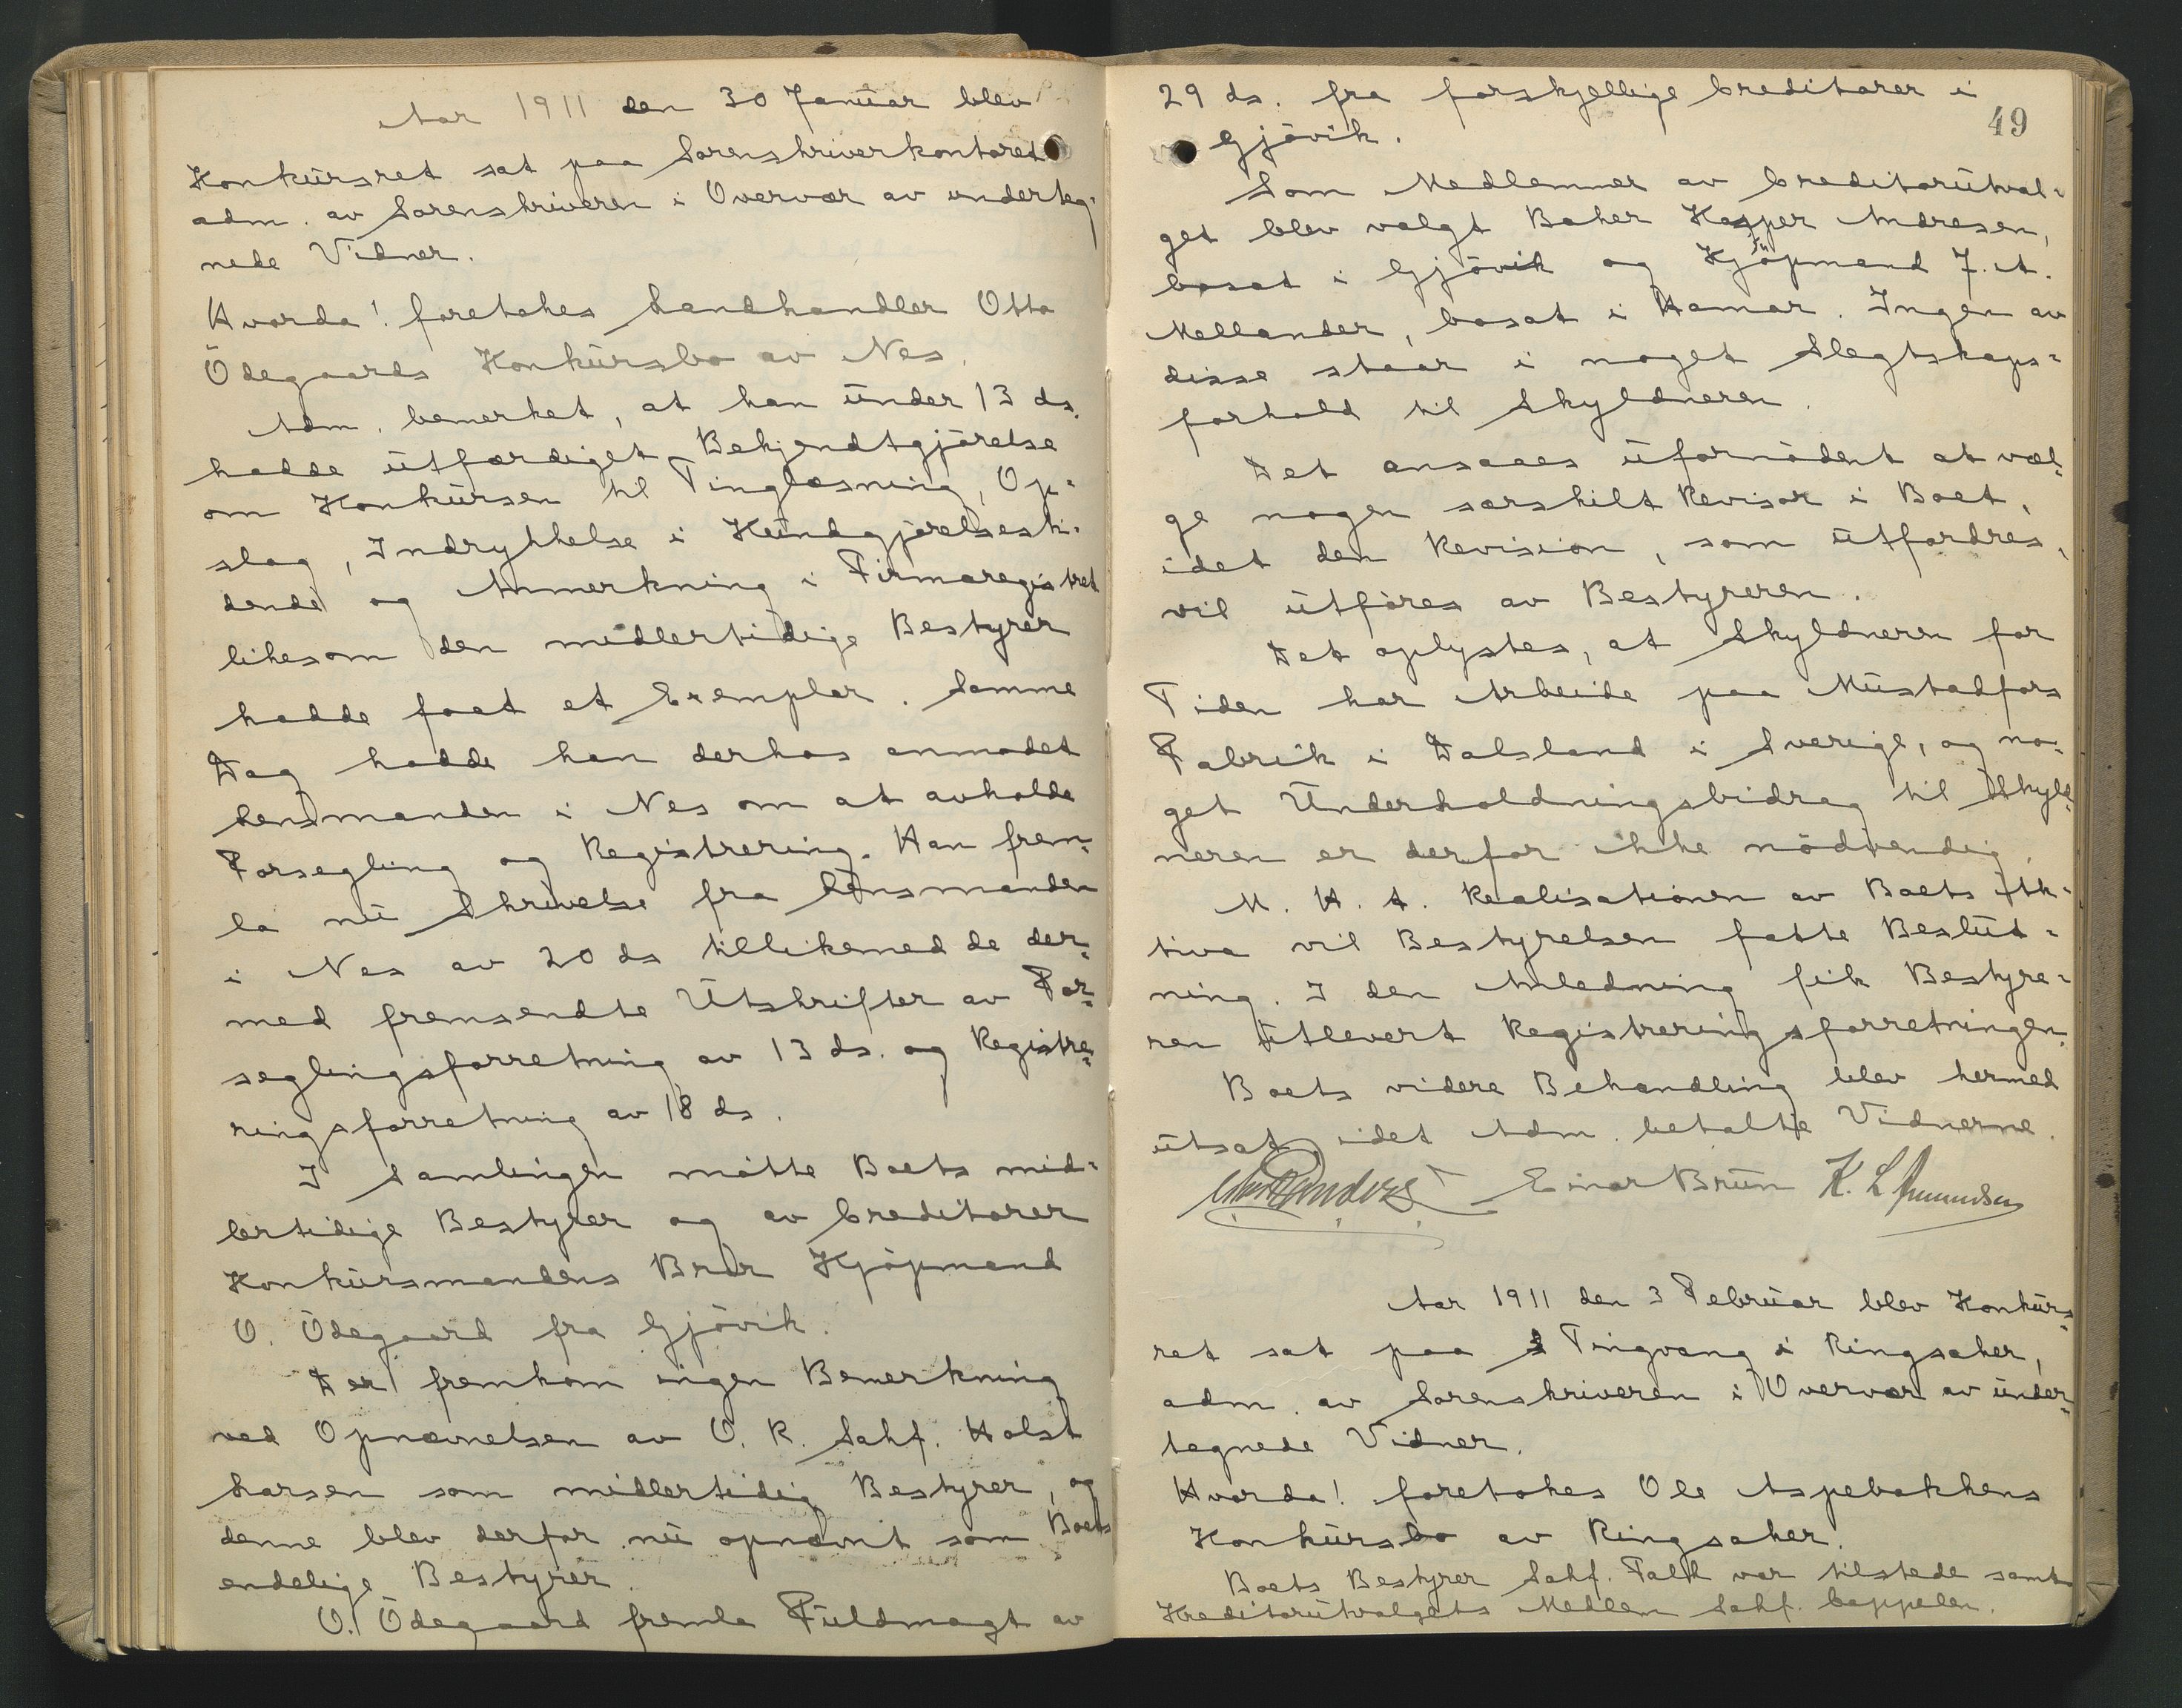 Aar 1911 den 30 Januar blev
Konkursret sat paa Sorenskriverkontoret
adm. av Sorenskriveren i Overvær av underteg-
nede Vidner.
Hvorda! foretokes Landhandler Otto
Ödegaards Konkursbo av Nes.
Adm. bemerket, at han under 13 ds.
hadde utfærdiget Bekjendtgjörelse
om Konkursen til Tinglæsning, Op-
slag, Indrykkelse i Kundgjörelsesti-
dende og Anmerkning i Firmaregistret
likesom den midlertidige Bestyrer
hadde faat et Exemplar. Samme
Dag hadde han derhos anmodet
Lensmanden i Nes om at avholde
Forsegling og Registrering. Han frem-
la nu Skrivelse fra Lensmanden
i Nes av 20 ds tillikemed de der-
med fremsendte Utskrifter av For-
seglingsforretning av 13 ds. og Registre-
ringsforretning av 18 ds.
I Samlingen mötte Boets mid-
lertidige Bestyrer og av Creditorer
Konkursmandens Bror Kjöpmand
O. Ödegaard fra Gjövik.
Der fremkom ingen Bemerkning
ved Opnævnelsen av O. R. Sakf. Holst
Larsen som midlertidig Bestyrer, og
denne blev derfor nu opnævnt som Boets
endelige Bestyrer.
O. Ödegaard fremla Fuldmagt av
49
29 ds. fra forskjellige Creditorer i
Gjövik.
Som Medlemmer av Creditorutval-
get blev valgt Baker Kasper Andresen,
bosat i Gjövik og Kjöpmand F. A.
Mellander, bosat i Hamar. Ingen av
disse staar i noget Slegtskaps-
forhold til Skyldneren.
Det ansaaes ufornödent at væl-
ge nogen særskilt Revisor i Boet,
idet den Revision, som utfordres,
vil utföres av Bestyreren.
Det oplystes, at Skyldneren for
Tiden har Arbeide paa Mustadfors
Fabrik i Dalsland i Sverige, og no-
get Underholdningsbidrag til Skyld-
neren er derfor ikke nödvendig.
M. H. t. Realisationen av Boets Ak-
tiva vil Bestyrelsen fatte Beslut-
ning. I den Anledning fik Bestyre-
ren utlevert Registreringsforretningen.
Boets videre Behandling blev hermed
utsat, idet Adm. betalte Vidnerne.
Einar Bruun K. L. Amundsen
Aar 1911 den 3 Februar blev Konkurs-
ret sat paa Tingvang i Ringsaker,
adm. av Sorenskriveren i Overvær av under-
tegnede Vidner.
Hvorda! foretokes Ole Aspebakkens
Konkursbo av Ringsaker.
Boets Bestyrer Sakf. Falk var tilstede samt
Kreditorutvalgets Medlem Sakf. Cappelen.